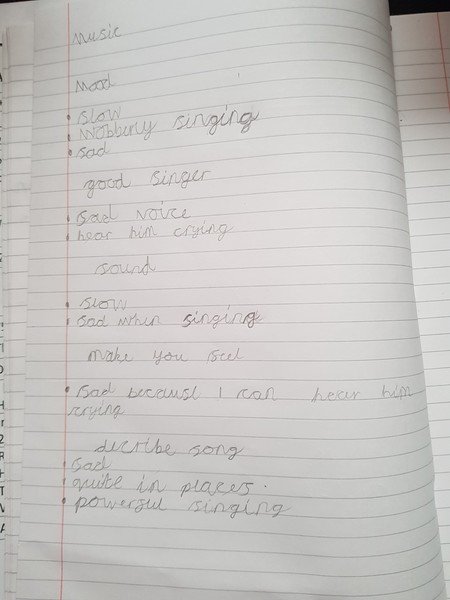 Music
Mood
• slow
• wobberly singing
• sad
good singer
• sad voice
• hear him crying
sound
• slow
• sad when singing
make you feel
• sad because I can hear him
crying
decribe song
• sad
• quite in places.
• powerful singing